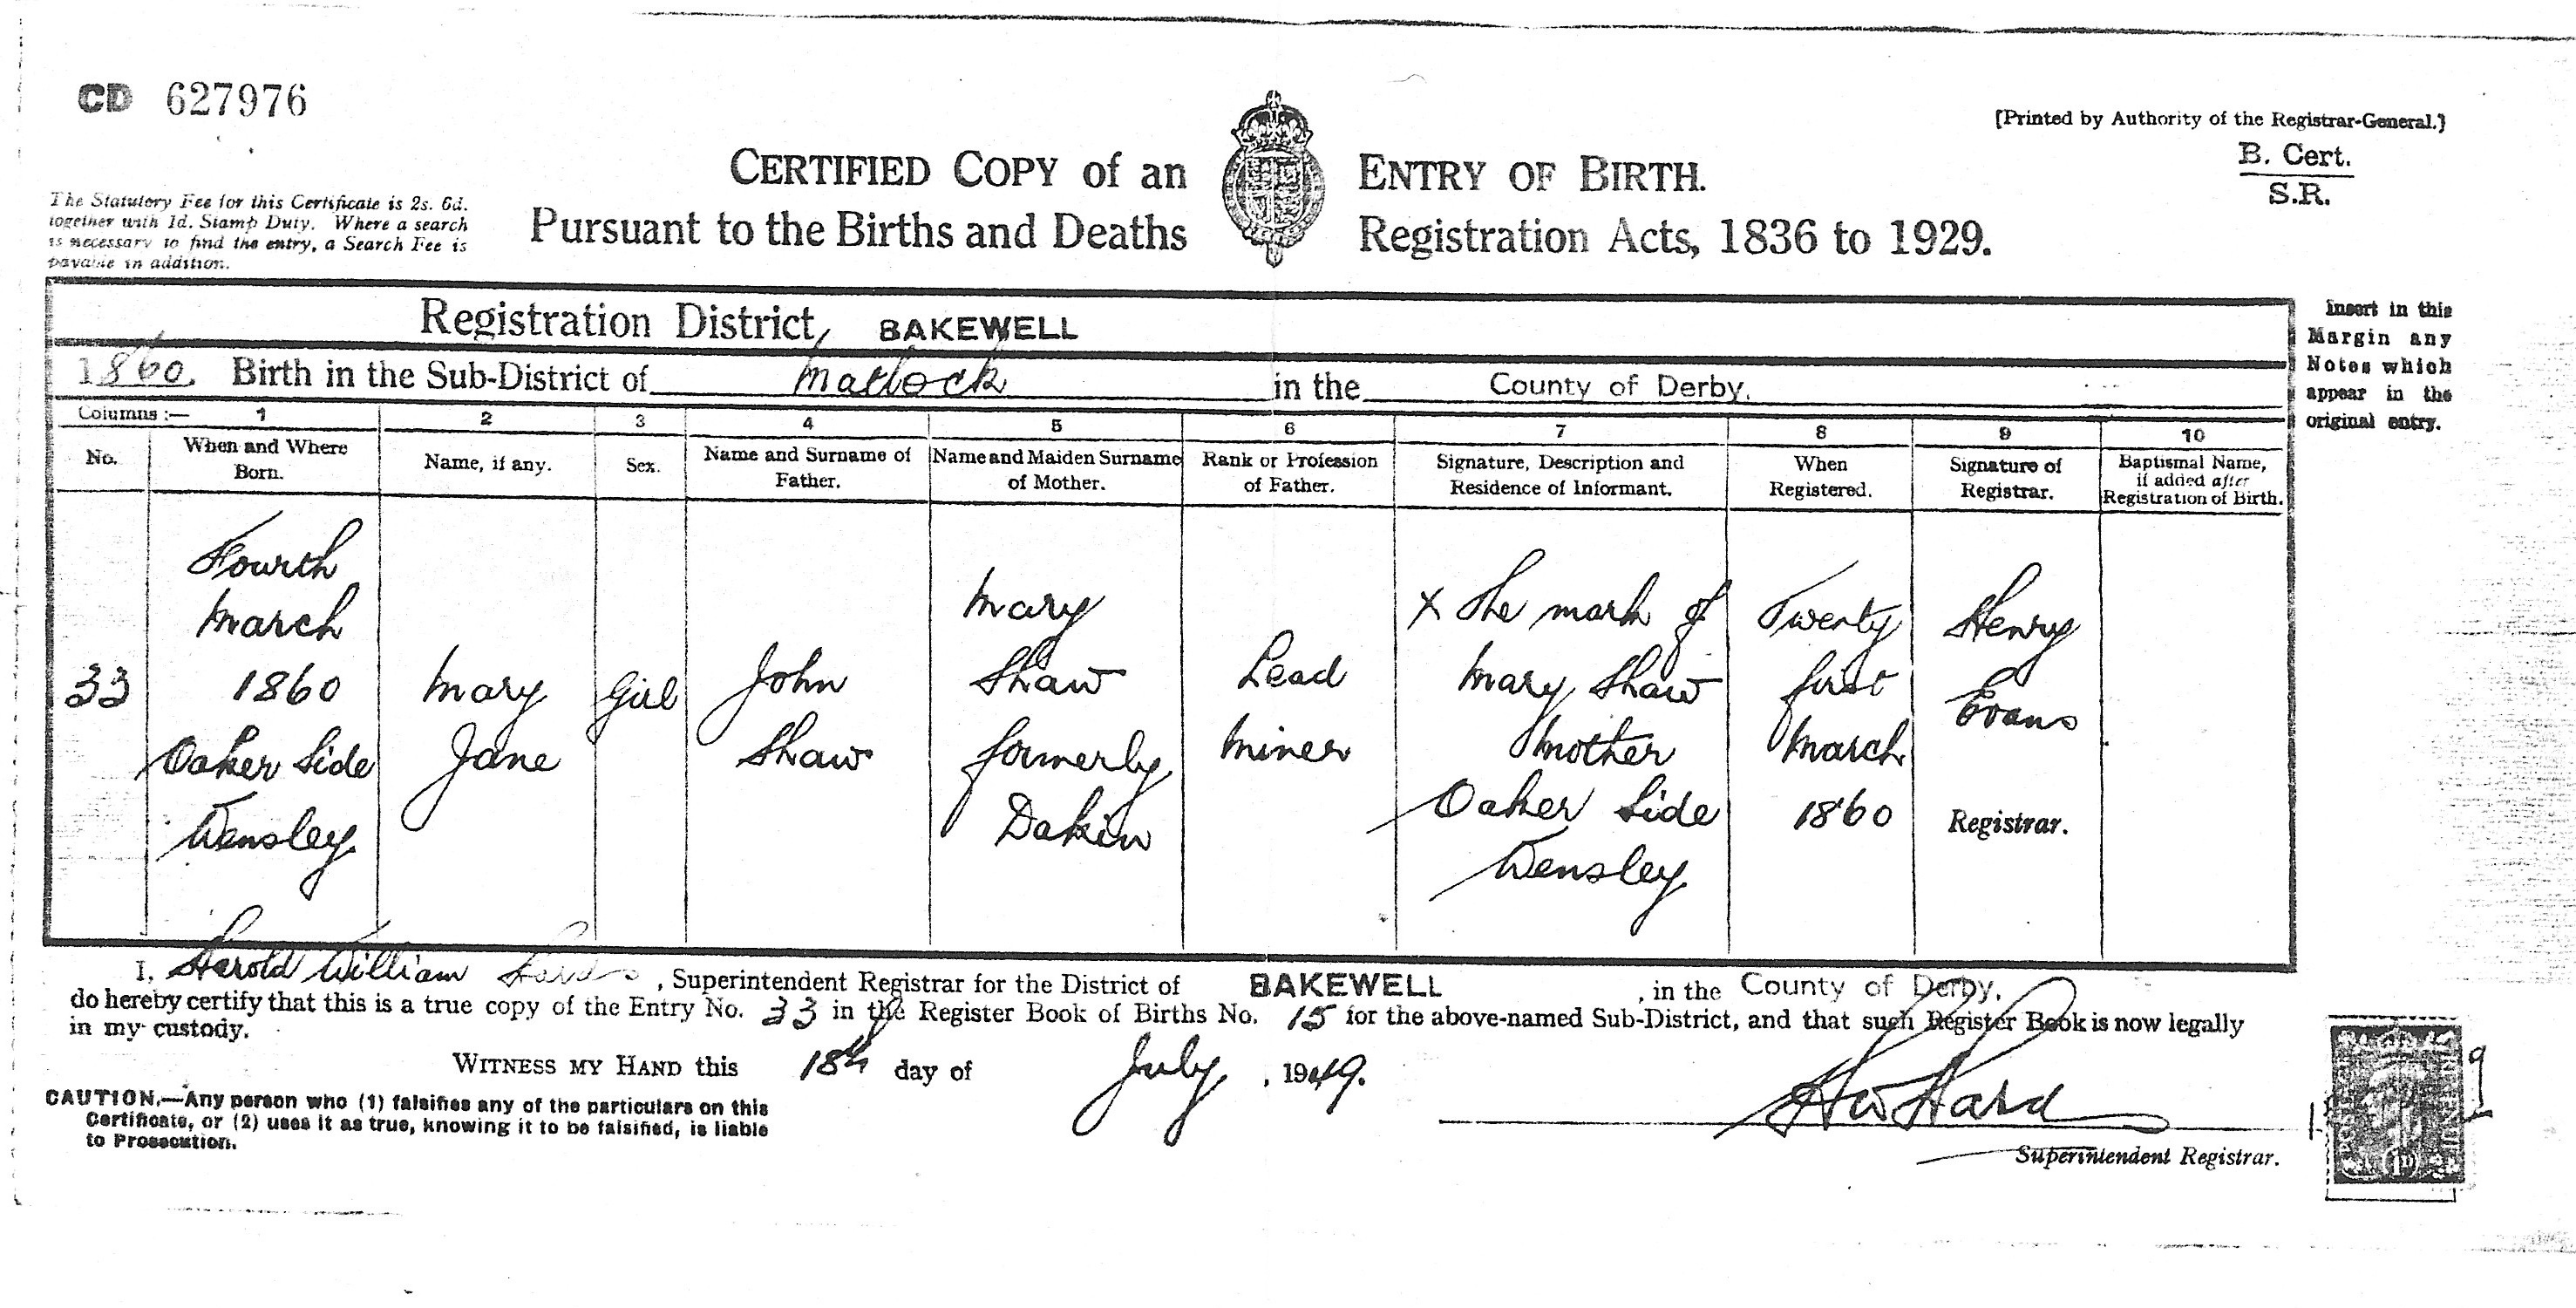 CD 627976
[Printed by Authority of the Registrar-General.]
B. Cert.
S.R.
CERTIFIED COPY of an ENTRY OF BIRTH.
Pursuant to the Births and Deaths Registration Acts, 1836 to 1929.
The Statutory Fee for this Certificate is 2s. 6d.
together with 1d. Stamp Duty. Where a search
is necessary to find the entry, a Search Fee is
payable in addition.
Registration District, BAKEWELL
1860. Birth in the Sub-District of Matlock in the County of Derby.
Insert in this
Margin any
Notes which
appear in the
original entry.
Columns :— 1 2 3 4 5 6 7 8 9 10
No.
When and Where
Born.
Name, if any.
Sex.
Name and Surname of
Father.
Name and Maiden Surname
of Mother.
Rank or Profession
of Father.
Signature, Description and
Residence of Informant.
When
Registered.
Signature of
Registrar.
Baptismal Name,
if added after
Registration of Birth.
33
Fourth
March
1860
Oaker Side
Wensley
Mary
Jane
Girl
John
Shaw
Mary
Shaw
formerly
Dakin
Lead
Miner
X The mark of
Mary Shaw
Mother
Oaker Side
Wensley
Twenty
first
March
1860
Henry
Evans
Registrar.
I, Harold William , Superintendent Registrar for the District of BAKEWELL , in the County of Derby,
do hereby certify that this is a true copy of the Entry No. 33 in the Register Book of Births No. 15 for the above-named Sub-District, and that such Register Book is now legally
in my custody.
WITNESS MY HAND this 18th day of July , 1949.
CAUTION.—Any person who (1) falsifies any of the particulars on this
Certificate, or (2) uses it as true, knowing it to be falsified, is liable
to Prosecution.
Superintendent Registrar.
1D